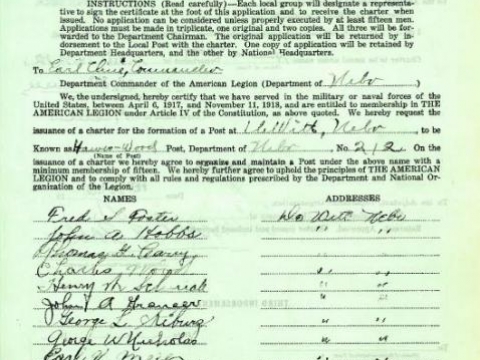 INSTRUCTIONS (Read carefully)—Each local group will designate a representa-
tive to sign the certificate at the foot of this application and to receive the charter when
issued. No application can be considered unless properly executed by at least fifteen men.
Applications must be made in triplicate, one original and two copies. All three will be for-
warded to the Department Chairman. The original application will be returned by in-
dorsement to the Local Post with the charter. One copy of application will be retained by
Department Headquarters, and the other by National Headquarters.
To Earl Cline, Commander
Department Commander of the American Legion (Department of Nebr
We, the undersigned, hereby certify that we have served in the military or naval forces of the
United States, between April 6, 1917, and November 11, 1918, and are entitled to membership in THE
AMERICAN LEGION under Article IV of the Constitution, as above quoted. We hereby request
issuance of a charter for the formation of a Post at DeWitt, Nebr, to be
Known as Post, Department of Nebr No. 212 On the
(Name of Post)
issuance of a charter we hereby agree to organize and maintain a Post under the above name with a
minimum membership of fifteen. We hereby further agree to uphold the principles of THE AMERICAN
LEGION and to comply with all rules and regulations prescribed by the Department and National Or-
ganization of the Legion.
NAMES ADDRESSES
Fred S Foster De Witt Nebr
John A Hobbs " "
Thomas F. Carry " "
Charles " "
Henry M " "
John A " "
George L. " "
George W Nicholas " "
Earl